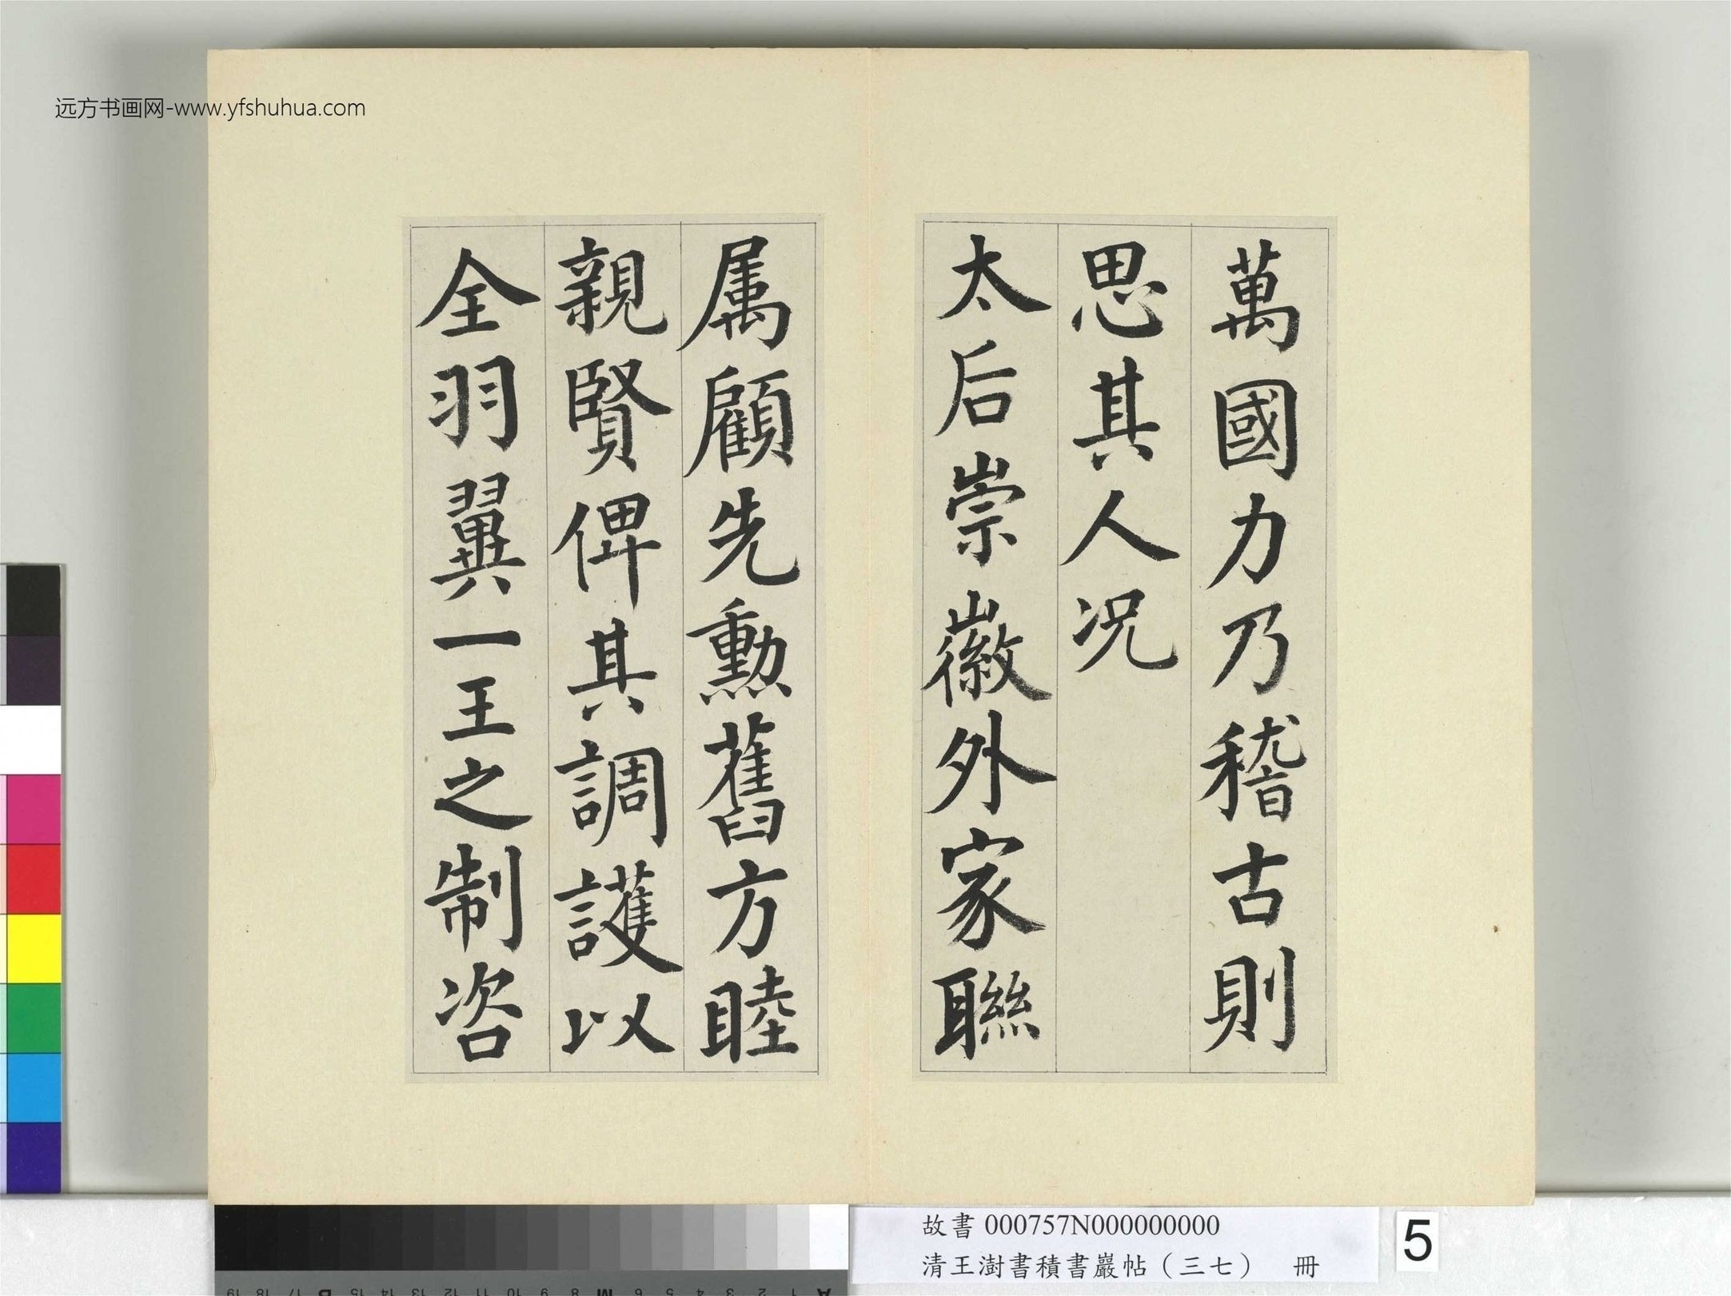 远方书画网-www.yfshuhua.com
萬國力乃稽古則
思其人况
太后崇徽外家聯
属顧先勳舊方睦
親賢俾其調護以
全羽翼一王之制咨
故書 000757N000000000
清王澍書積書巖帖（三七） 冊
5